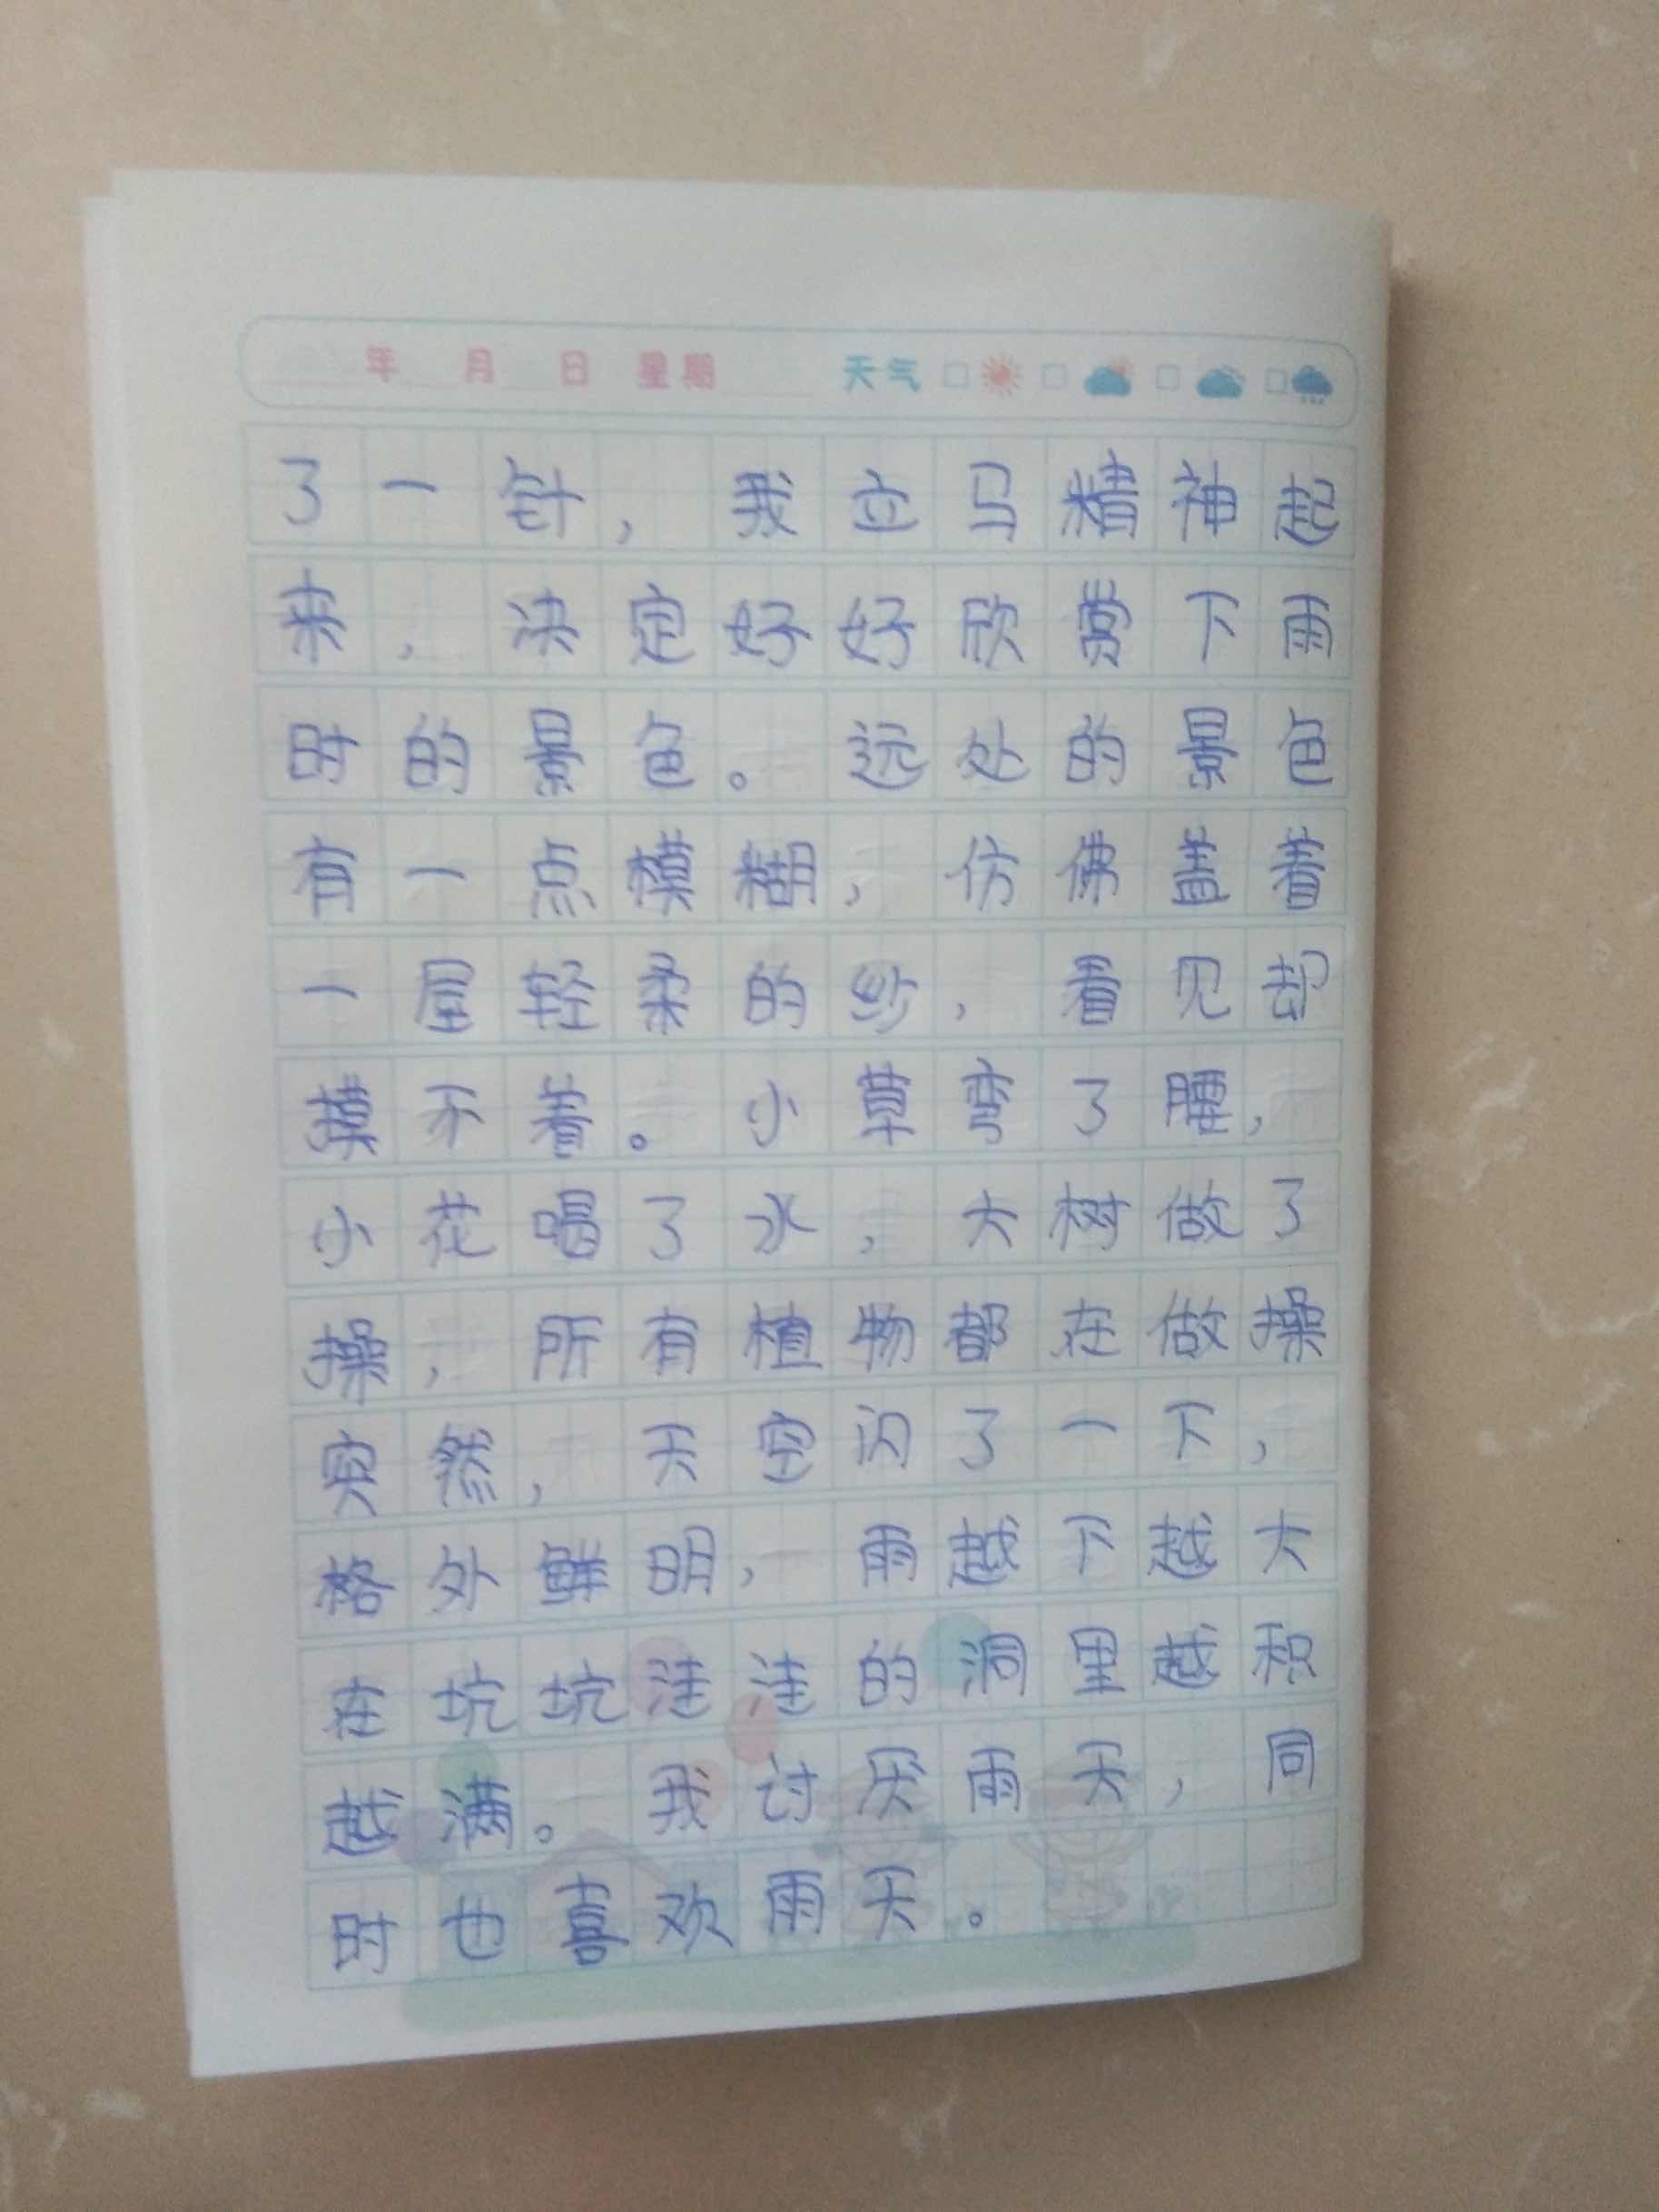 年 月 日 星期 天气
了一针，我立马精神起
来，决定好好欣赏下雨
时的景色。远处的景色
有一点模糊，仿佛盖着
一层轻柔的纱，看见却
摸不着。小草弯了腰，
小花喝了水，大树做了
操，所有植物都在做操
突然，天空闪了一下，
格外鲜明，雨越下越大
在坑坑洼洼的洞里越积
越满。我讨厌雨天，同
时也喜欢雨天。